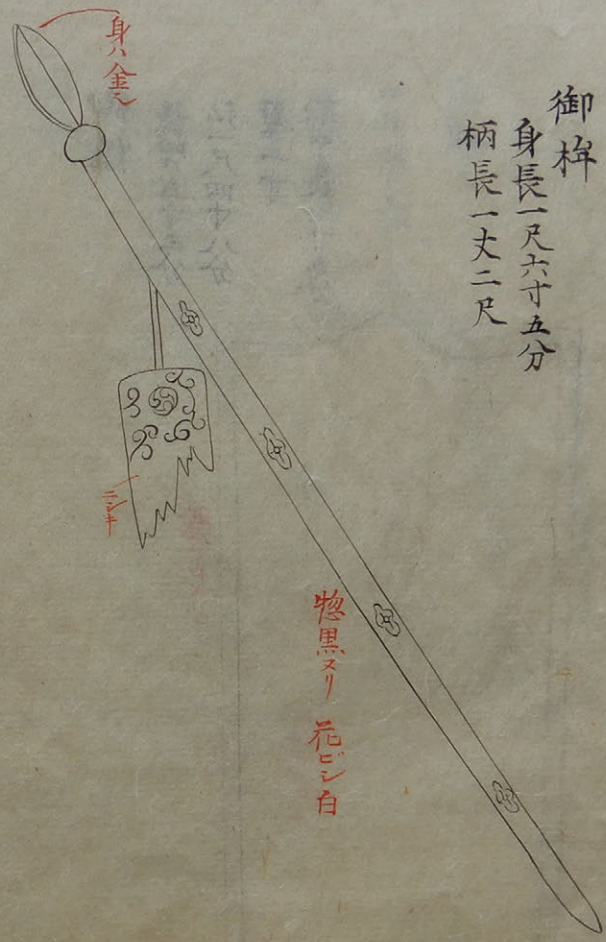 御桙
身長一尺六寸五分
柄長一丈二尺
身ハ金
ニシキ
惣黒ヌリ 花ビシ白